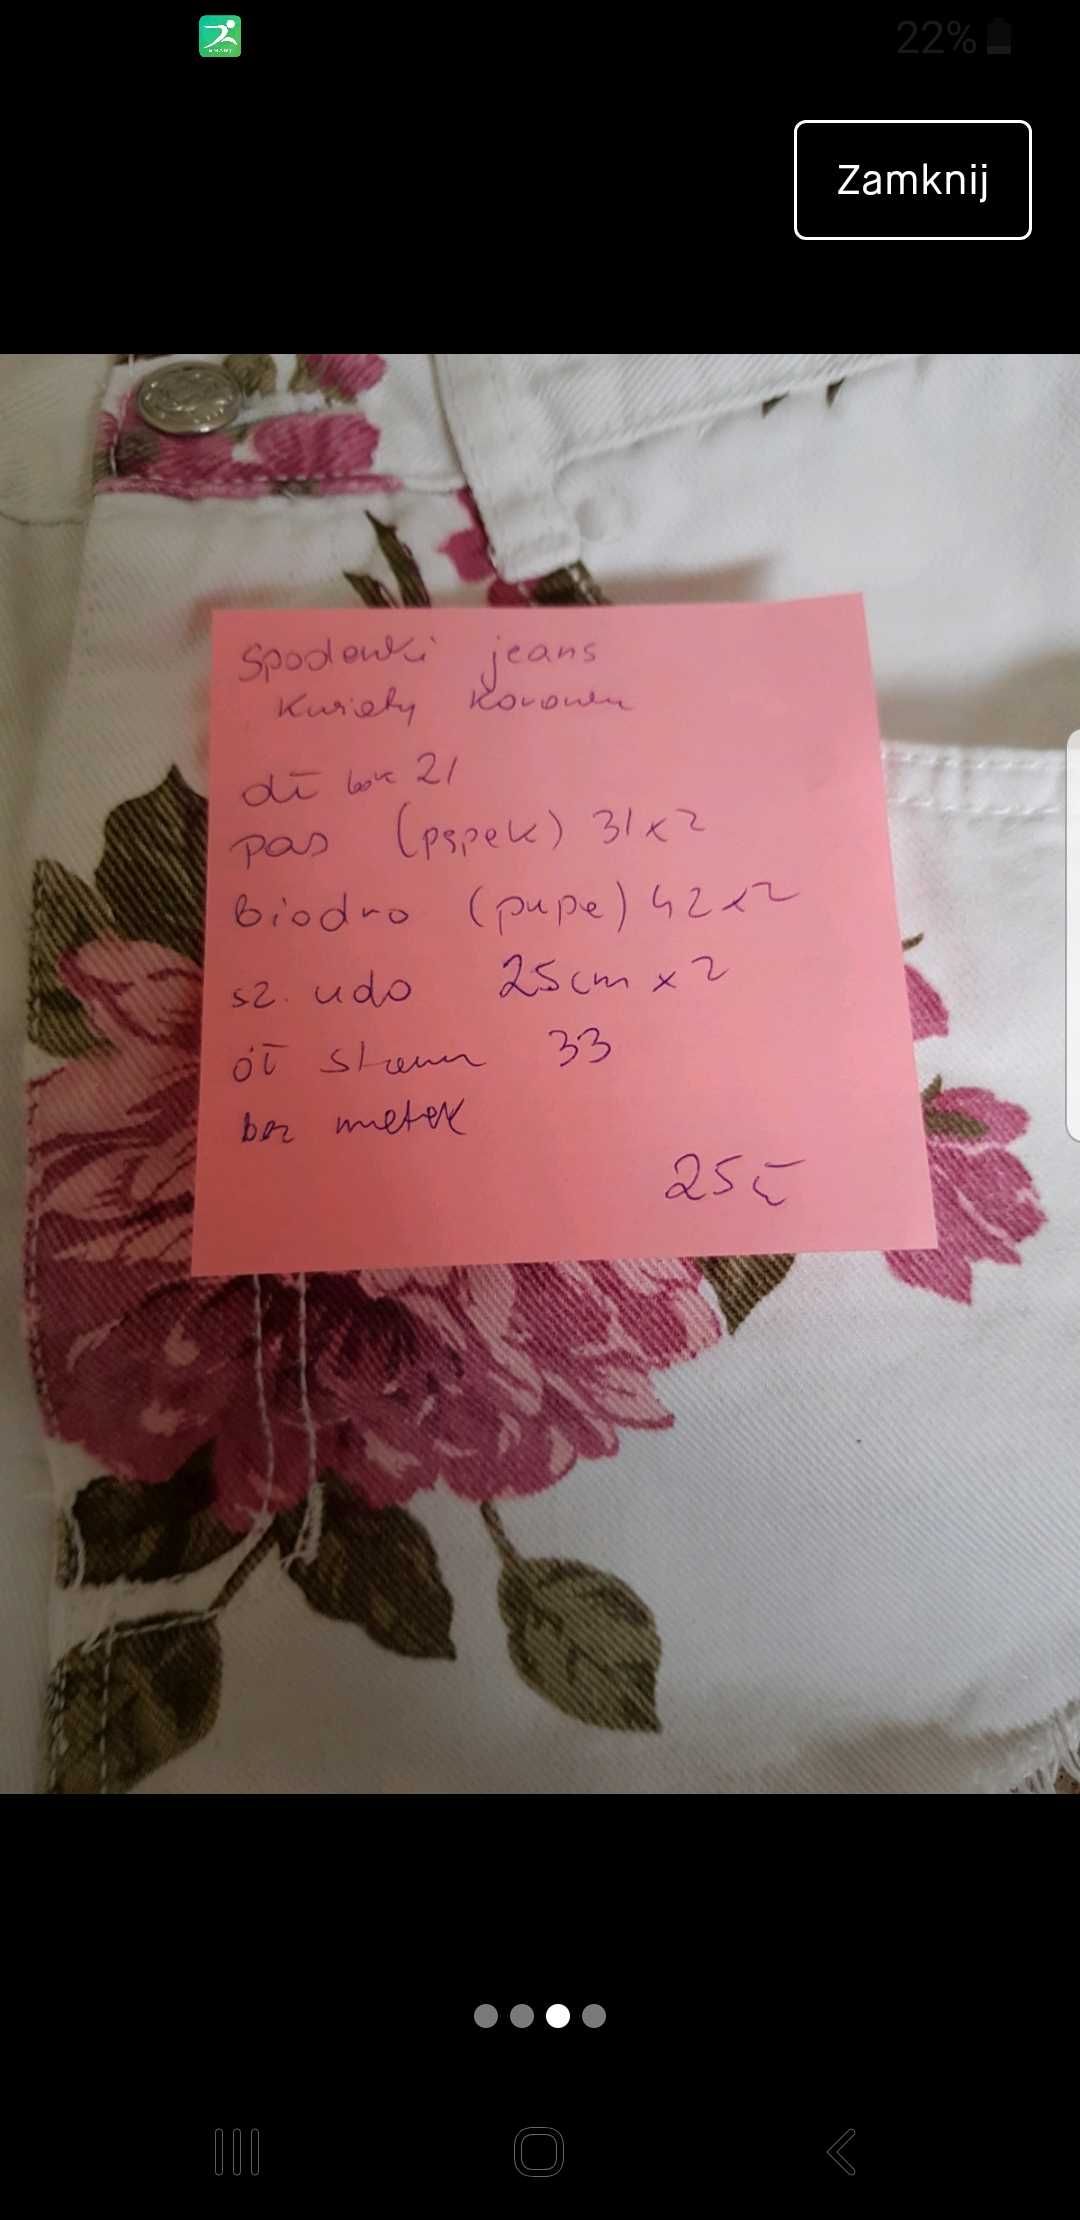 22%
Zamknij
Spodenki jeans
Kwiaty
dł bok 21
pas (pępek) 31x2
biodro (pupe) 42x2
sz. udo 25cm x 2
33
bez metek
25zł